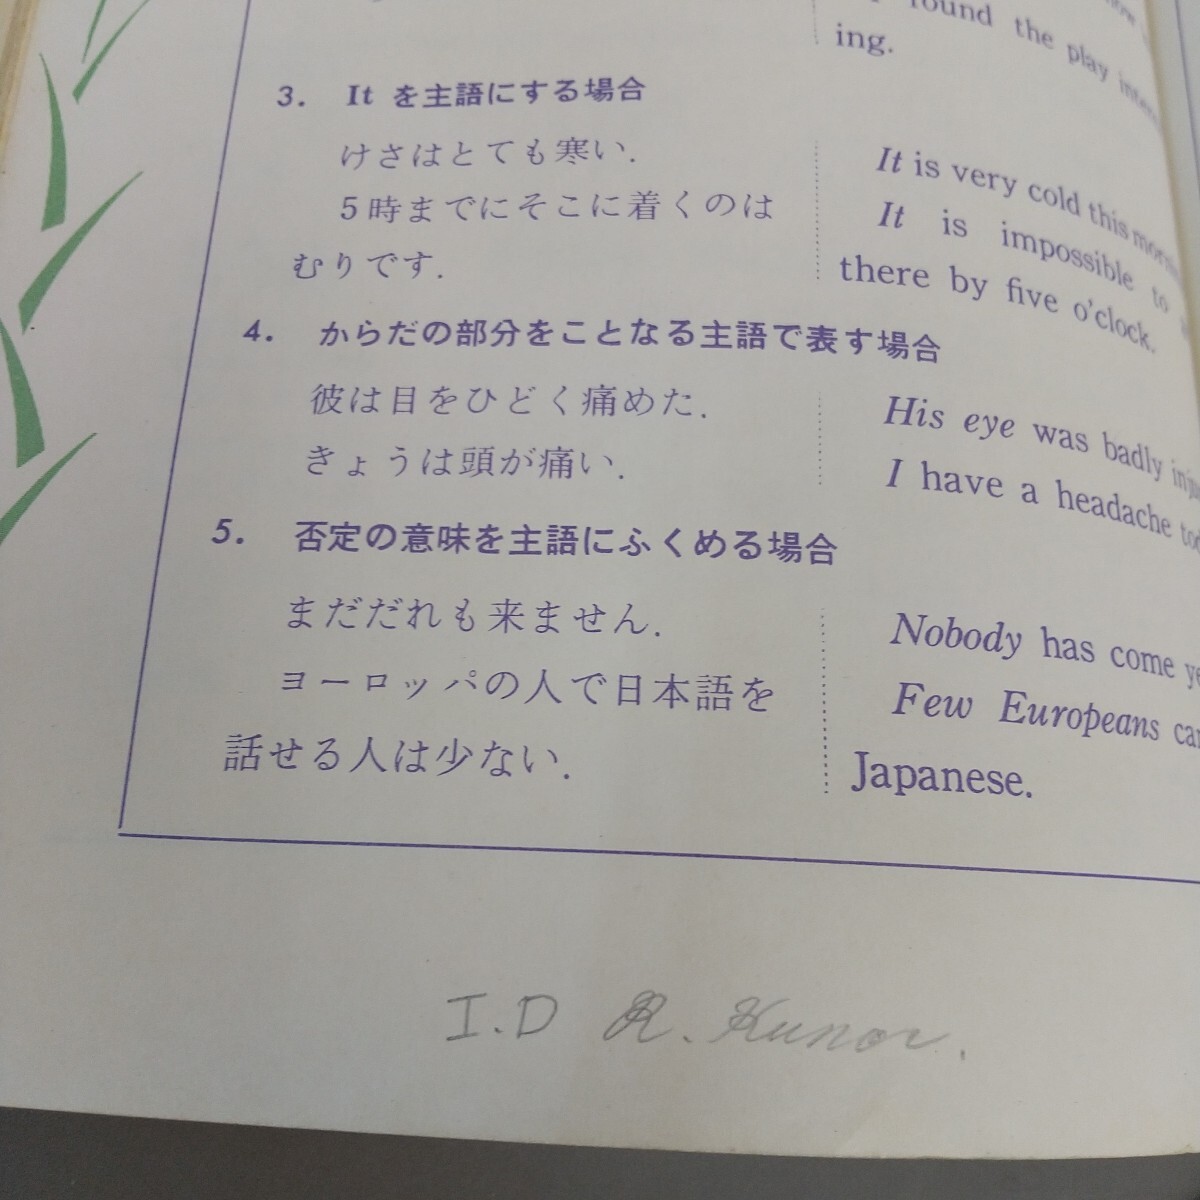 found the play
ing.
3. It を主語にする場合
けさはとても寒い.
It is very cold this
5時までにそこに着くのは
むりです.
It is impossible to
there by five o'clock.
4. からだの部分をことなる主語で表す場合
彼は目をひどく痛めた.
His eye was badly
きょうは頭が痛い.
I have a headache
5. 否定の意味を主語にふくめる場合
まだだれも来ません.
Nobody has come
ヨーロッパの人で日本語を
話せる人は少ない.
Few Europeans
Japanese.
I.D R.